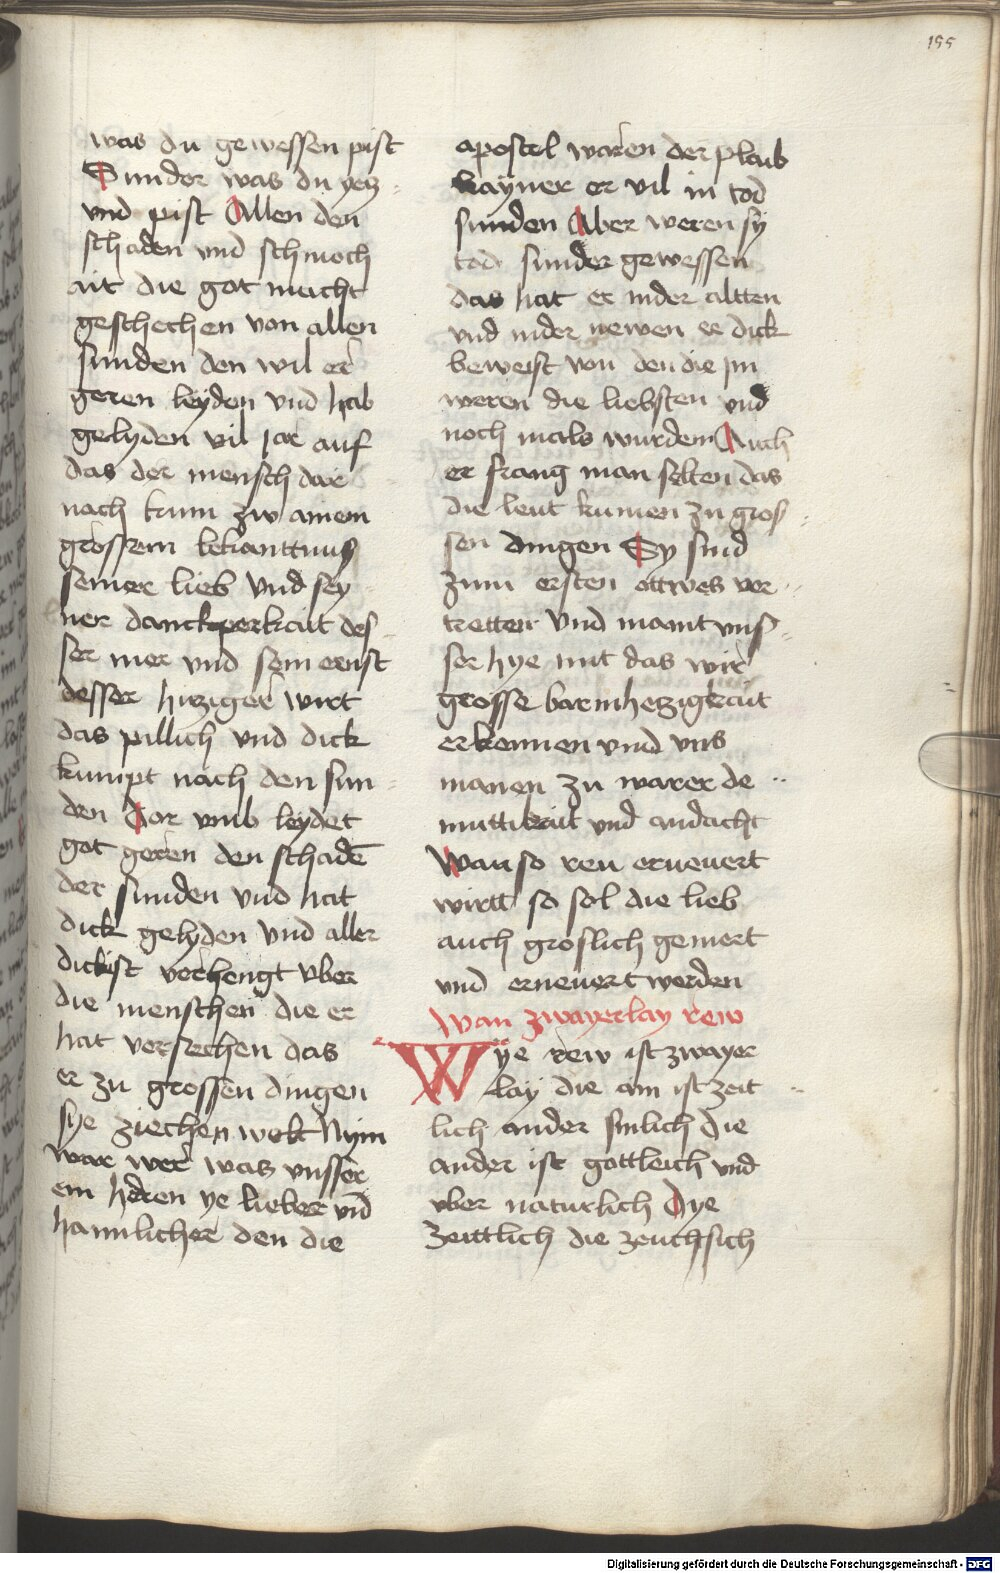 155
was du gewessen pist
Sunder was du yetz
vnd pist Allen den
schaden vnd schmoch
ait die got macht
geschechen von allen
sunden den wil er
geren leyden vnd hab
gelyden vil jar auf
das der mensch dar
nach kum zw ainem
grossern bekanttnus
seiner lieb vnd sey
ner danckperkait des
ser mer vnd sein ernst
desser hitziger wirt
das pillich vnd dick
kumpt nach den sun
den Dar vmb leydet
got geren den schadē
der sunden vnd hat
dick gelyden vnd aller
dickist verhengt vber
die menschen die er
hat versechen das
er zu grossen dingen
sye ziechen wolt Nym
war wer was vnsser
em heren ye lieber vnd
haimlicher den die
apostel waren der plaib
kayner er vil in tod
sunden Aber weren sy
tod sunder gewessen
das hat er inder altten
vnd inder newen ee dick
beweist von den die jm
weren die liebsten vnd
noch mals wurden Auch
er frang man selten das
die leut kumen zu gros
sen dingen Sy sind
zum ersten ettwes ver
tretten Vnd maint vns
ser hye mit das wir
grosse barmhetzigkait
erkennen vnd vns
manen zu warer de
muttikait vnd andacht
Wan so reu erneuert
wirtt so sol die lieb
auch groslich gemert
vnd erneuert werden
Wan zwayerlay rew
Wye rew ist zwayer
lay die ain ist zeit
lich ander sinlich die
ander ist gottleich vnd
vber naturlich Dye
zeittlich die zeuchsich
Digitalisierung gefördert durch die Deutsche Forschungsgemeinschaft - DFG